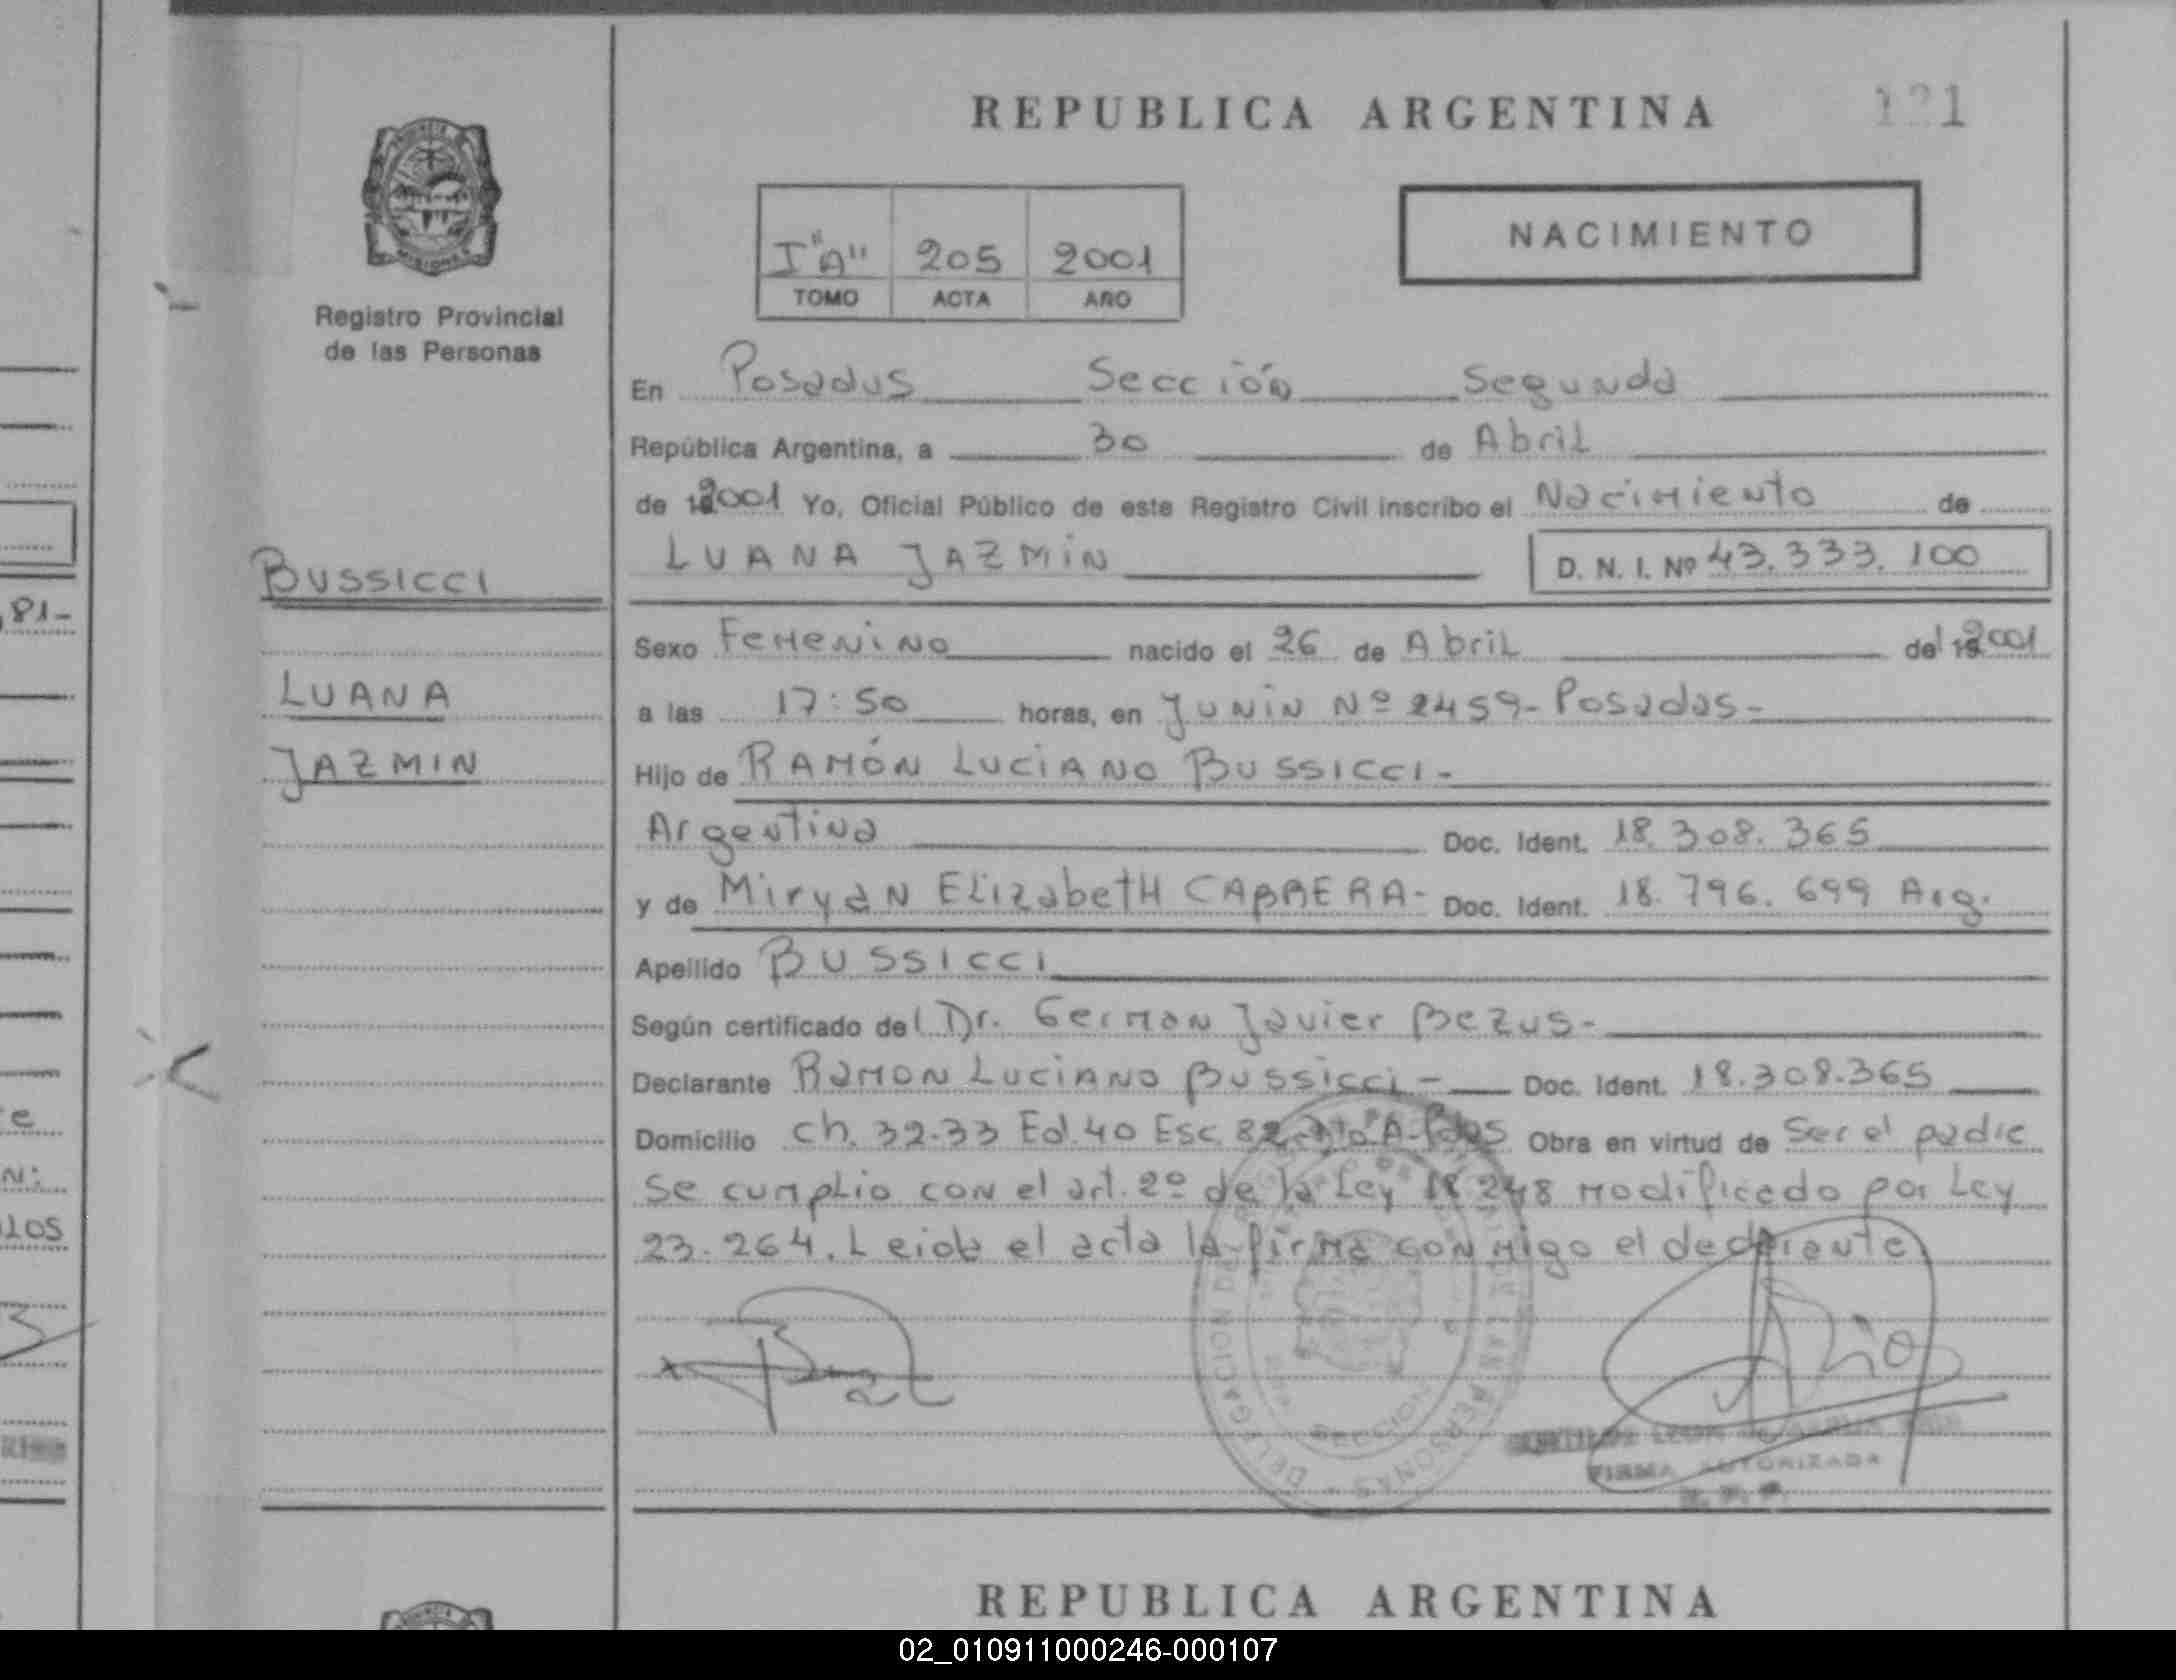 REPUBLICA ARGENTINA
MISIONES
Registro Provincial
de las Personas
I "A" 205 2001
TOMO ACTA AÑO
NACIMIENTO
En Posadas Sección Segunda
República Argentina, a 30 de Abril
de 2001 Yo, Oficial Público de este Registro Civil inscribo el Nacimiento de
LUANA JAZMIN D. N. I. Nº 43.333.100
BUSSICCI
LUANA
JAZMIN
Sexo Femenino nacido el 26 de Abril del 2001
a las 17:50 horas, en Junin Nº 2459-Posadas-
Hijo de RAMÓN LUCIANO BUSSICCI-
Argentina Doc. Ident. 18.308.365
y de Miryan Elizabeth CABRERA- Doc. Ident. 18.796.699 Arg.
Apellido BUSSICCI
Según certificado del Dr. German Javier Bezus-
Declarante Ramon Luciano Bussicci- Doc. Ident. 18.308.365
Domicilio Ch. 32-33 Ed. 40 Esc. 82 A-Pdas Obra en virtud de Ser el padre
Se cumplio con el art. 2º de la Ley 18248 modificado por Ley
23.264. Leida el acta la firma conmigo el declarante
DELEGACION DE PERSONAS
SECCION
FIRMA AUTORIZADA
R. P. P.
81-
e
N:
LOS
REPUBLICA ARGENTINA
02_010911000246-000107